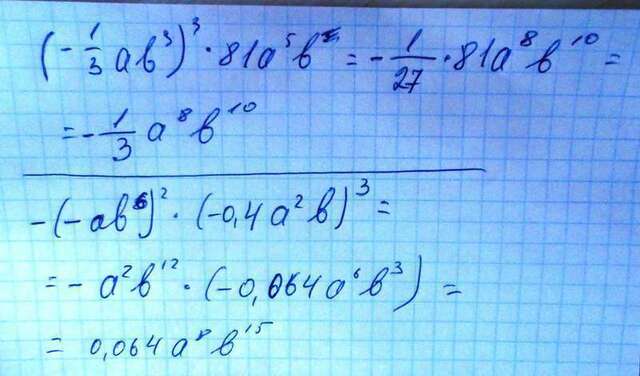 (-1/3 ab³)³ · 81a⁵b = -1/27 · 81a⁸b¹⁰ =
= -1/3 a⁸b¹⁰
-(-ab⁶)² · (-0,4a²b)³ =
= -a²b¹² · (-0,064a⁶b³) =
= 0,064a⁸b¹⁵